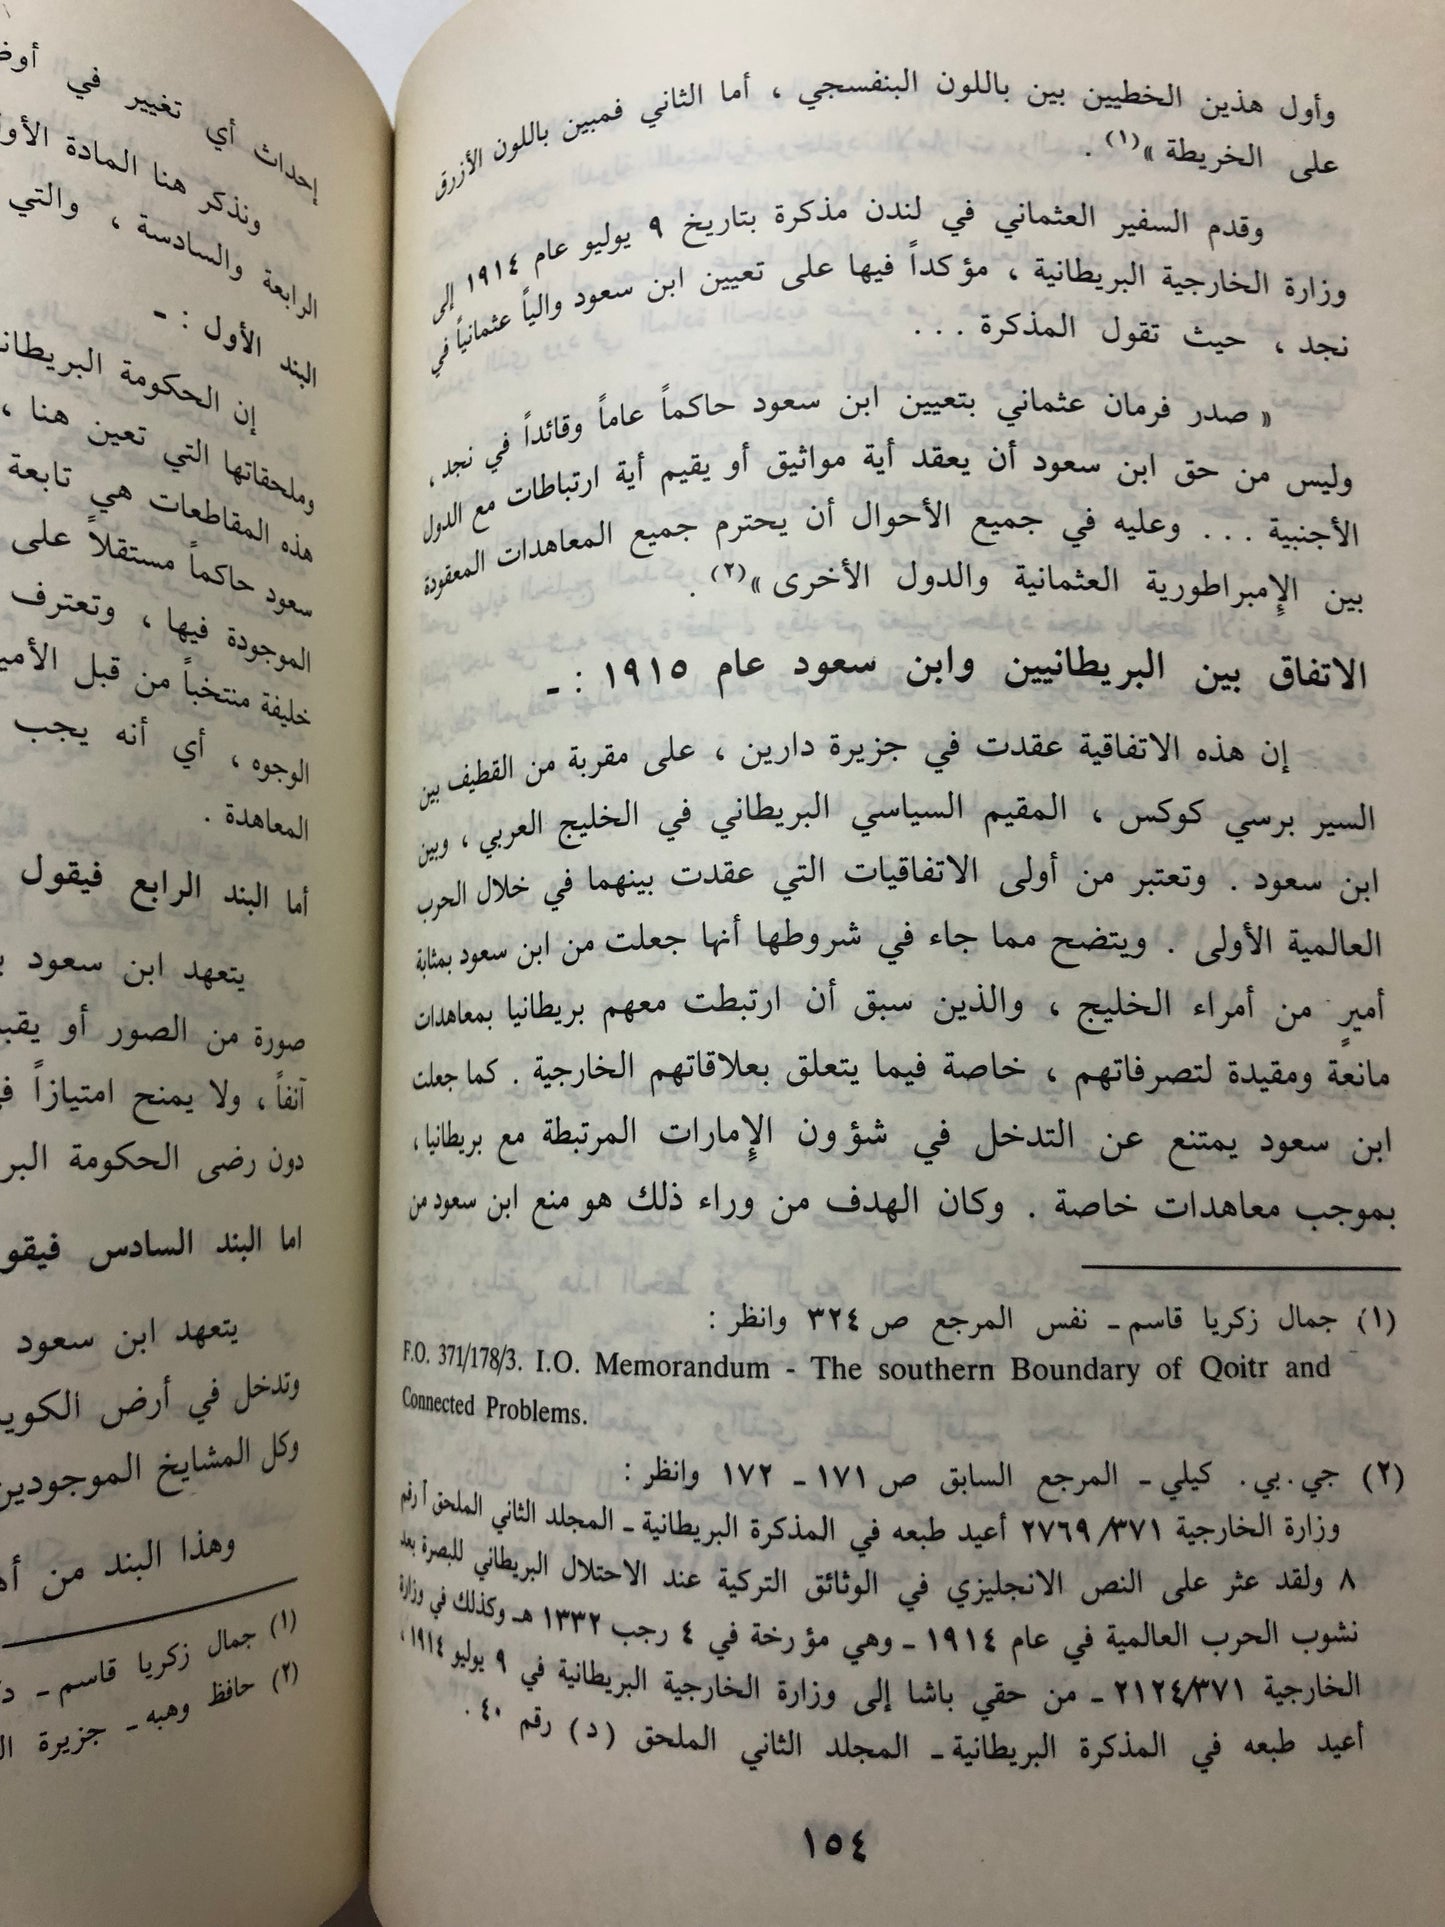 وأول هذين الخطيين بين باللون البنفسجي ، أما الثاني فمبين باللون الأزرق
على الخريطة »(١) .
وقدم السفير العثماني في لندن مذكرة بتاريخ ٩ يوليو عام ١٩١٤ إلى
وزارة الخارجية البريطانية ، مؤكداً فيها على تعيين ابن سعود والياً عثمانياً في
نجد ، حيث تقول المذكرة . . .
« صدر فرمان عثماني بتعيين ابن سعود حاكماً عاماً وقائداً في نجد ،
وليس من حق ابن سعود أن يعقد أية مواثيق أو يقيم أية ارتباطات مع الدول
الأجنبية . . . وعليه في جميع الأحوال أن يحترم جميع المعاهدات المعقودة
بين الإمبراطورية العثمانية والدول الأخرى »(٢) .
الاتفاق بين البريطانيين وابن سعود عام ١٩١٥ : ـ
إن هذه الاتفاقية عقدت في جزيرة دارين ، على مقربة من القطيف بين
السير برسي كوكس ، المقيم السياسي البريطاني في الخليج العربي ، وبين
ابن سعود . وتعتبر من أولى الاتفاقيات التي عقدت بينهما في خلال الحرب
العالمية الأولى . ويتضح مما جاء في شروطها أنها جعلت من ابن سعود بمثابة
أميرٍ من أمراء الخليج ، والذين سبق أن ارتبطت معهم بريطانيا بمعاهدات
مانعة ومقيدة لتصرفاتهم ، خاصة فيما يتعلق بعلاقاتهم الخارجية . كما جعلت
ابن سعود يمتنع عن التدخل في شؤون الإمارات المرتبطة مع بريطانيا ،
بموجب معاهدات خاصة . وكان الهدف من وراء ذلك هو منع ابن سعود من
(١) جمال زكريا قاسم ـ نفس المرجع ص ٣٢٤ وانظر :
F.O. 371/178/3. I.O. Memorandum - The southern Boundary of Qoitr and
Connected Problems.
(٢) جي . بي . كيلي ـ المرجع السابق ص ١٧١ ـ ١٧٢ وانظر :
وزارة الخارجية ٢٧٦٩/٣٧١ أعيد طبعه في المذكرة البريطانية ـ المجلد الثاني الملحق أ رقم
٨ ولقد عثر على النص الانجليزي في الوثائق التركية عند الاحتلال البريطاني للبصرة بعد
نشوب الحرب العالمية في عام ١٩١٤ ـ وهي مؤرخة في ٤ رجب ١٣٣٢ هـ وكذلك في وزارة
الخارجية ٢١٢٤/٣٧١ ـ من حقي باشا إلى وزارة الخارجية البريطانية في ٩ يوليو ١٩١٤ ،
أعيد طبعه في المذكرة البريطانية ـ المجلد الثاني الملحق (د) رقم ٤٠ .
١٥٤
إحداث أي تغيير في
ونذكر هنا المادة
الرابعة والسادسة ، والتي
البند الأول : ـ
إن الحكومة
وملحقاتها التي تعين هنا ،
هذه المقاطعات هي تابعة
سعود حاكماً مستقلاً على
الموجودة فيها ، وتعترف
خليفة منتخباً من قبل
الوجوه ، أي أنه يجب
المعاهدة .
أما البند الرابع فيقول
يتعهد ابن سعود
صورة من الصور أو
آنفاً ، ولا يمنح امتيازاً
دون رضى الحكومة
اما البند السادس
يتعهد ابن سعود
وتدخل في أرض
وكل المشايخ
وهذا البند من
(١) جمال زكريا قاسم ـ
(٢) حافظ وهبه ـ جزيرة